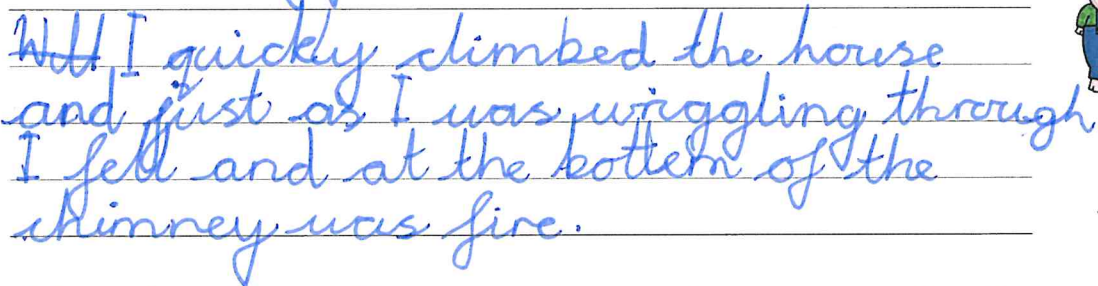 I quickly climbed the house
and just as I was wriggling through
I fell and at the bottem of the
chimney was fire.